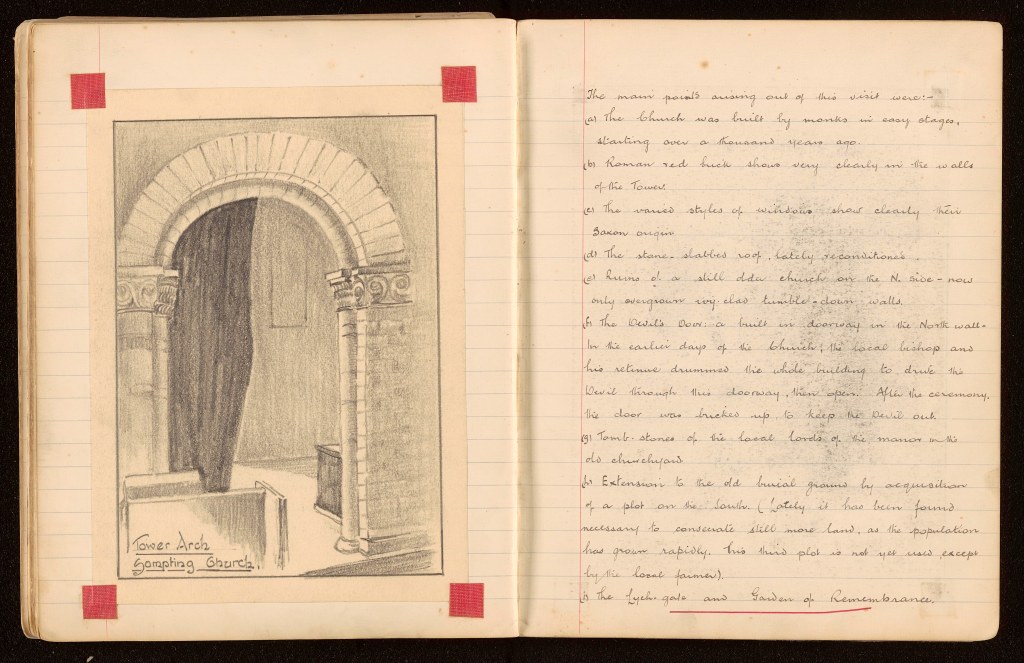 Tower Arch
Sompting Church.
The main points arising out of this visit were:-
(a) The Church was built by monks in easy stages,
starting over a thousand years ago.
(b) Roman red brick shows very clearly in the walls
of the Tower.
(c) The varied styles of windows show clearly their
Saxon origin
(d) The stone-slabbed roof, lately reconditioned.
(e) Ruins of a still older church on the N. side - now
only overgrown ivy clad tumble-down walls.
(f) The Devil's Door: a built in doorway in the North wall-
In the earlier days of the Church, the local bishop and
his retinue drummed the whole building to drive the
Devil through this doorway, then open. After the ceremony,
the door was bricked up to keep the Devil out.
(g) Tomb-stones of the local lords of the manor in the
old churchyard
(h) Extension to the old burial ground by acquisition
of a plot on the South. (Lately it has been found
necessary to consecrate still more land, as the population
has grown rapidly. This third plot is not yet used, except
by the local farmer).
(i) The Lych-gate and Garden of Remembrance.